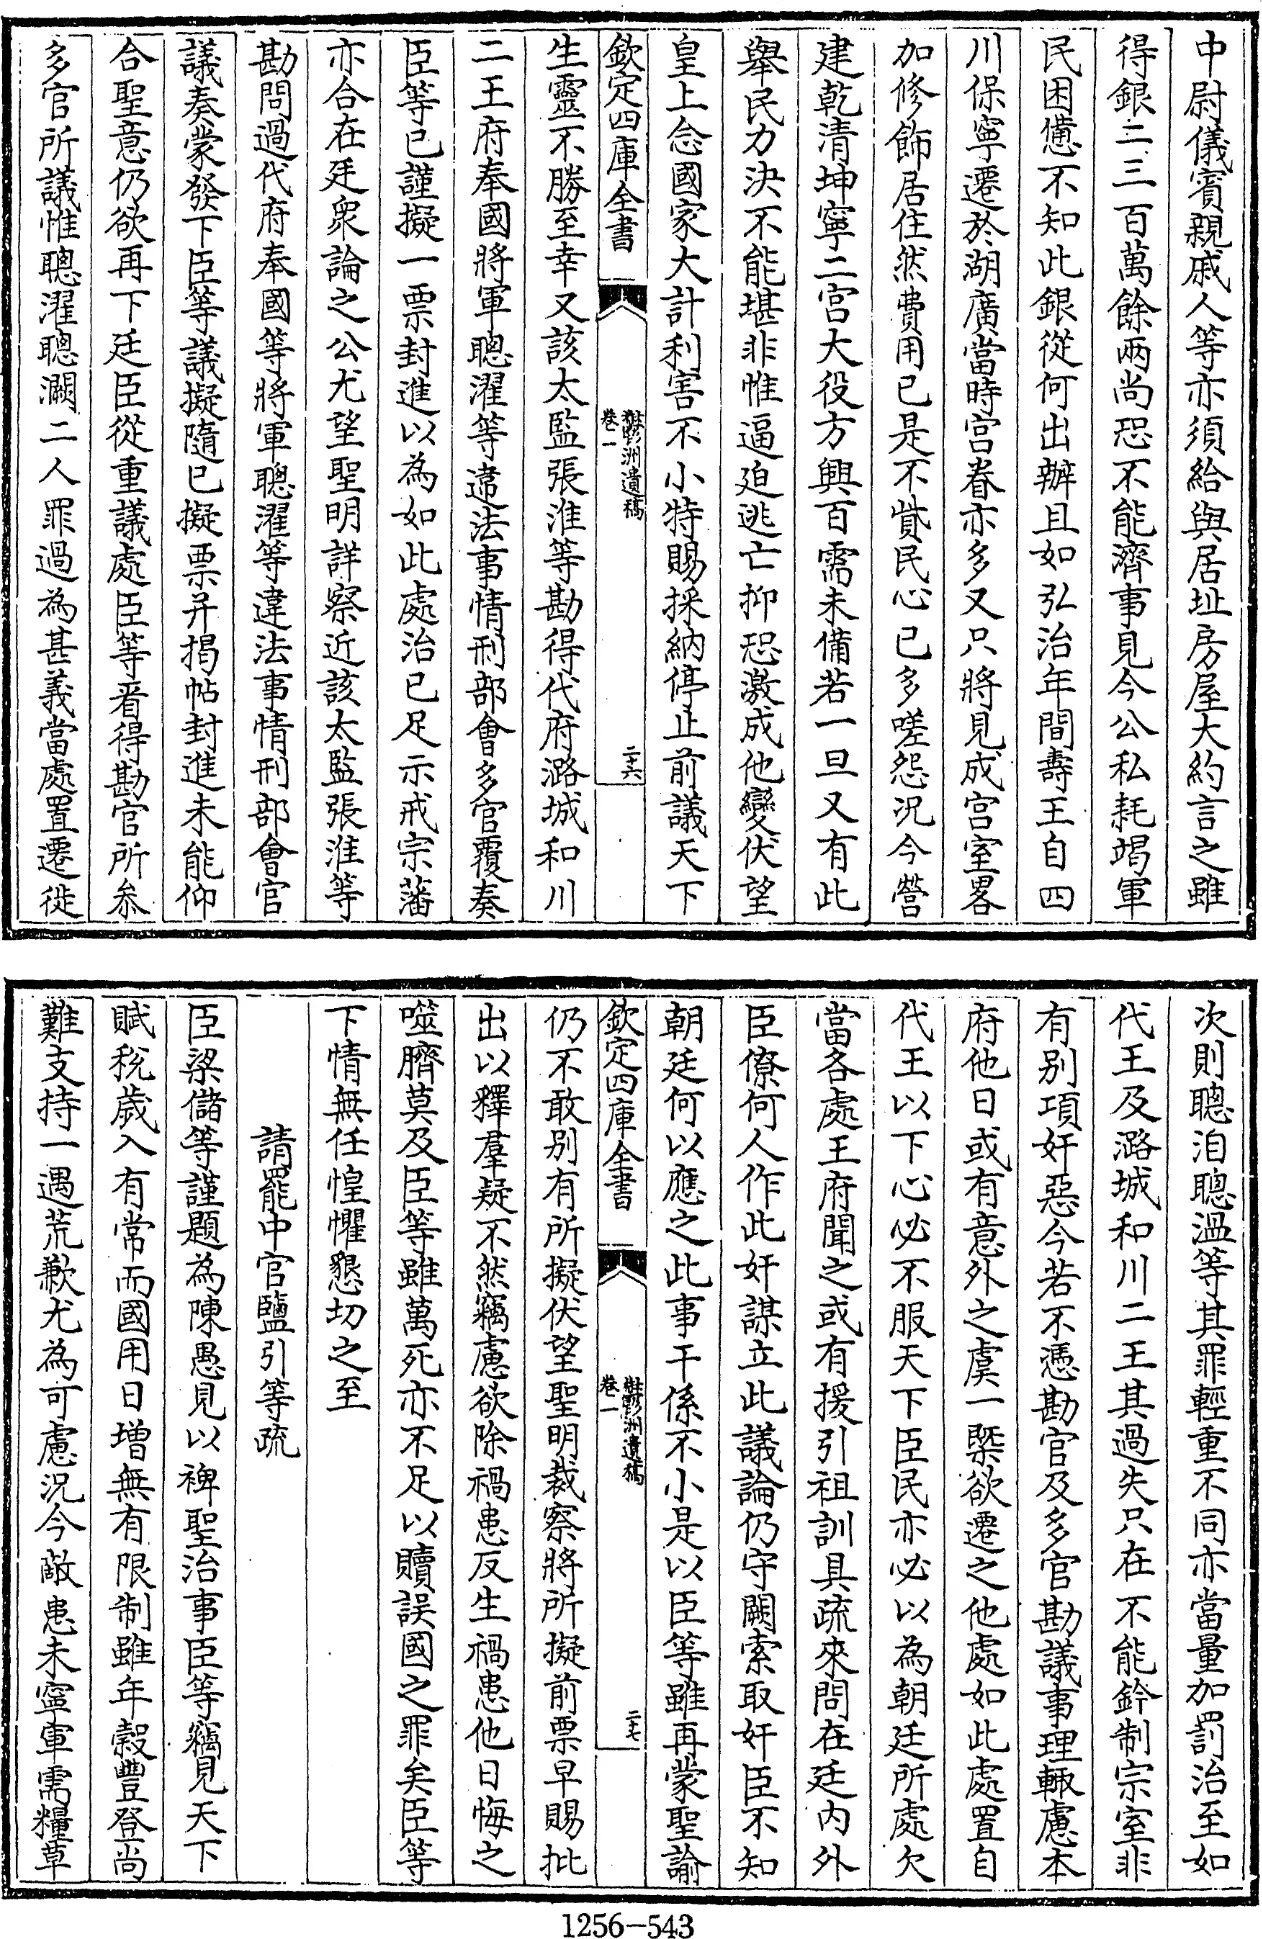 中尉儀賓親戚人等亦須給與居址房屋大約言之雖
得銀二三百萬餘兩尚恐不能濟事見今公私耗竭軍
民困憊不知此銀從何出辦且如弘治年間壽王自四
川保寧遷於湖廣當時宮眷亦多又只將見成宮室畧
加修飾居住然費用已是不貲民心已多嗟怨況今營
建乾清坤寧二宮大役方興百需未備若一旦又有此
舉民力決不能堪非惟逼迫逃亡抑恐激成他變伏望
皇上念國家大計利害不小特賜採納停止前議天下
欽定四庫全書
鬱洲遺稿
卷一
二十六
生靈不勝至幸又該太監張淮等勘得代府潞城和川
二王府奉國將軍聰濯等違法事情刑部會多官覆奏
臣等已謹擬一票封進以為如此處治已足示戒宗藩
亦合在廷衆論之公尤望聖明詳察近該太監張淮等
勘問過代府奉國等將軍聰濯等違法事情刑部會官
議奏蒙發下臣等議擬隨已擬票并揭帖封進未能仰
合聖意仍欲再下廷臣從重議處臣等看得勘官所叅
多官所議惟聰濯聰灍二人罪過為甚義當處置遷徙
次則聰洎聰溫等其罪輕重不同亦當量加罰治至如
代王及潞城和川二王其過失只在不能鈐制宗室非
有别項奸惡今若不憑勘官及多官勘議事理輙慮本
府他日或有意外之虞一槩欲遷之他處如此處置自
代王以下心必不服天下臣民亦必以為朝廷所處欠
當各處王府聞之或有援引祖訓具疏來問在廷内外
臣僚何人作此奸謀立此議論仍守闕索取奸臣不知
朝廷何以應之此事干係不小是以臣等雖再蒙聖諭
欽定四庫全書
鬱洲遺稿
卷一
二十七
仍不敢别有所擬伏望聖明裁察將所擬前票早賜批
出以釋羣疑不然竊慮欲除禍患反生禍患他日悔之
噬臍莫及臣等雖萬死亦不足以贖誤國之罪矣臣等
下情無任惶懼懇切之至
請罷中官鹽引等疏
臣梁儲等謹題為陳愚見以裨聖治事臣等竊見天下
賦稅歲入有常而國用日增無有限制雖年穀豐登尚
難支持一遇荒歉尤為可慮況今敵患未寧軍需糧草
1256-543